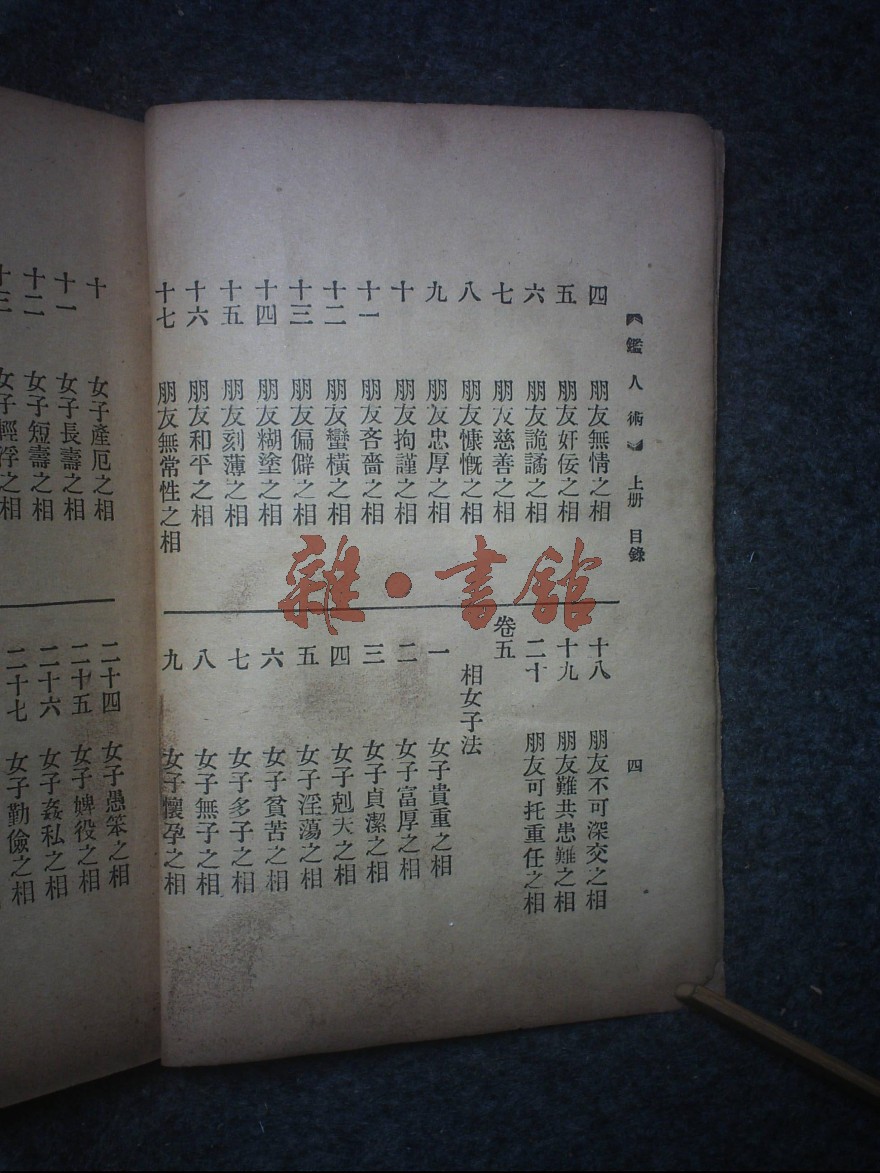 【鑑人術】 上册 目錄 四
四 朋友無情之相
五 朋友奸佞之相
六 朋友詭譎之相
七 朋友慈善之相
八 朋友慷慨之相
九 朋友忠厚之相
十 朋友拘謹之相
十一 朋友吝嗇之相
十二 朋友蠻橫之相
十三 朋友偏僻之相
十四 朋友糊塗之相
十五 朋友刻薄之相
十六 朋友和平之相
十七 朋友無常性之相
十八 朋友不可深交之相
十九 朋友難共患難之相
二十 朋友可托重任之相
卷五
相女子法
一 女子貴重之相
二 女子富厚之相
三 女子貞潔之相
四 女子剋夫之相
五 女子淫蕩之相
六 女子貧苦之相
七 女子多子之相
八 女子無子之相
九 女子懷孕之相
十 女子產厄之相
十一 女子長壽之相
十二 女子短壽之相
十三 女子輕浮之相
二十四 女子愚笨之相
二十五 女子婢役之相
二十六 女子姦私之相
二十七 女子勤儉之相
雜·書館